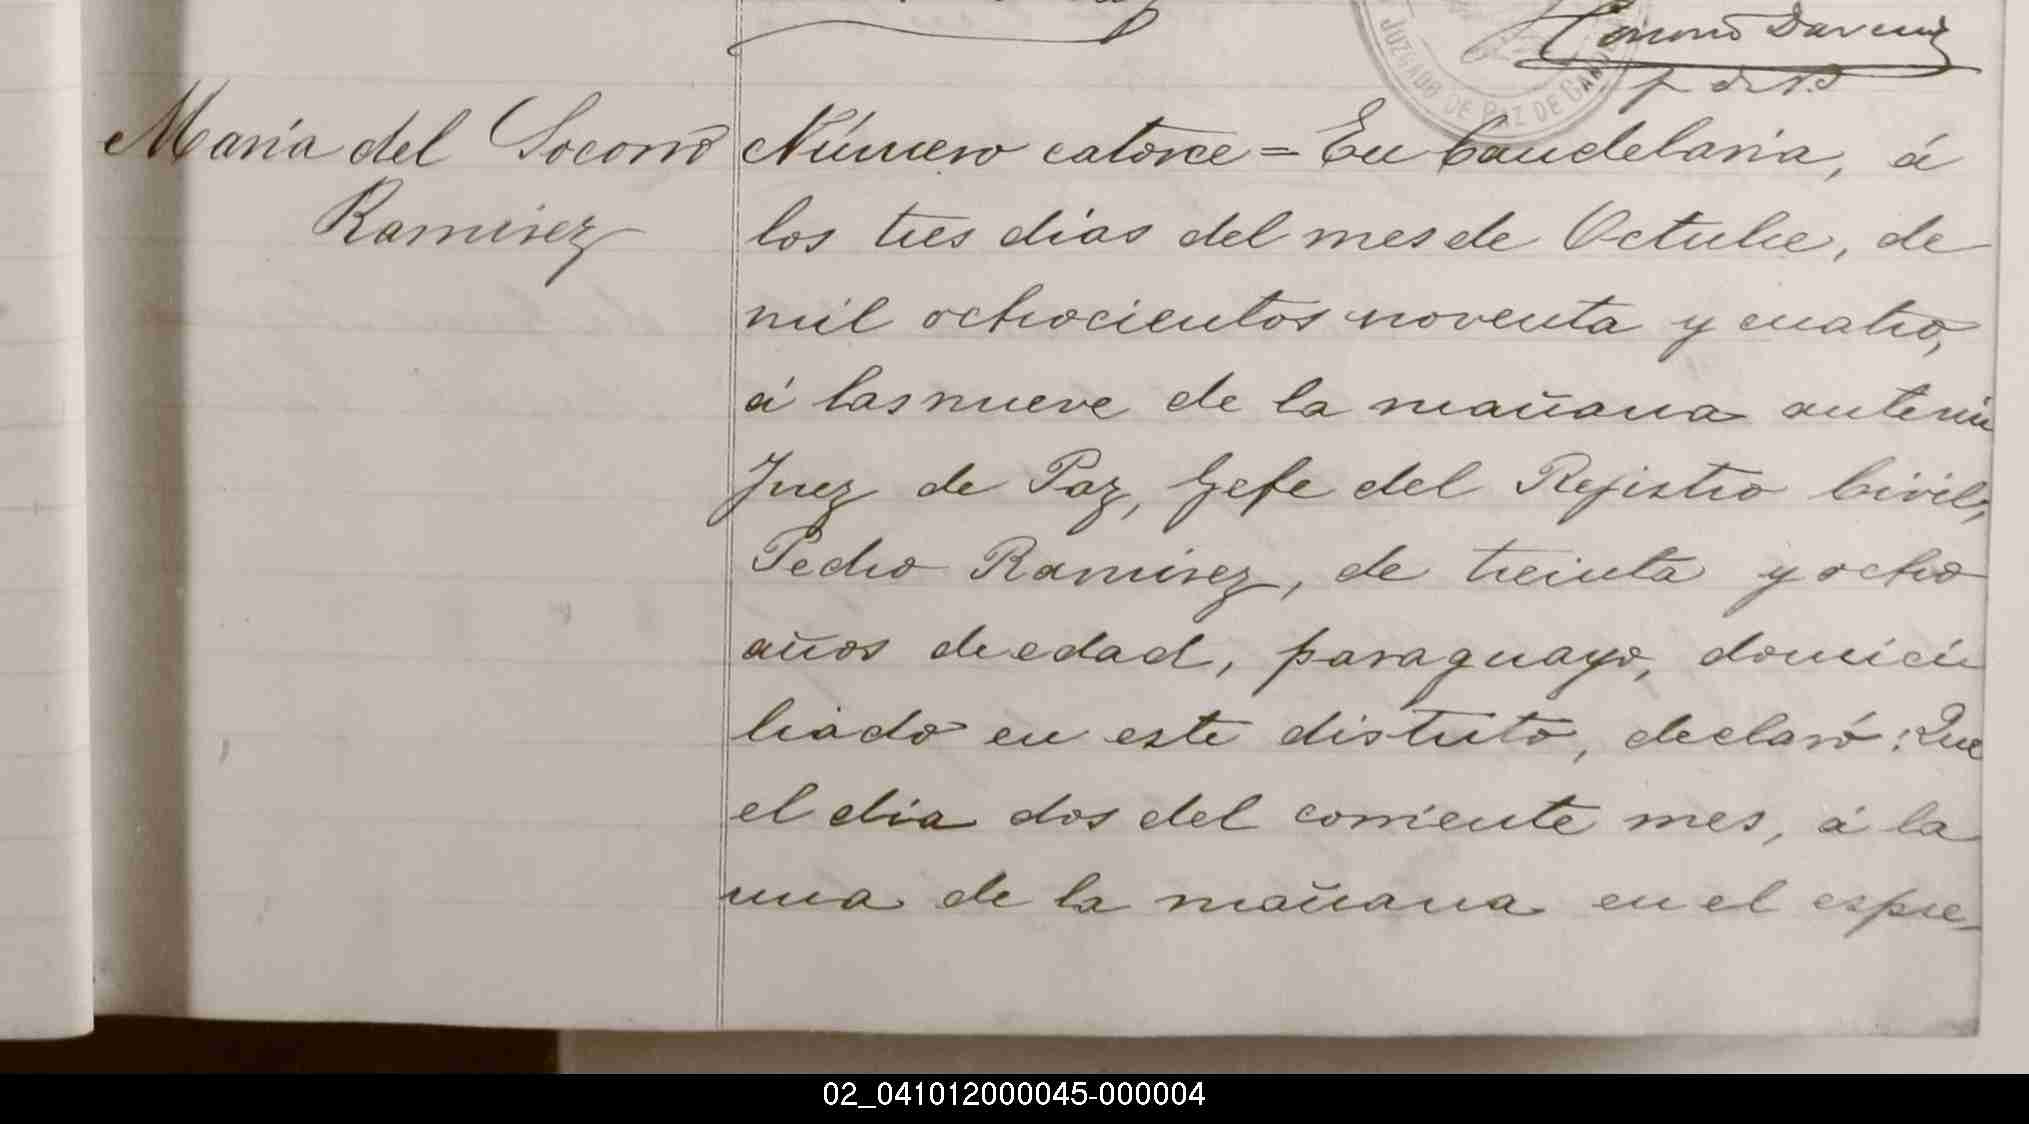 JUZGADO DE PAZ DE CAN
María del Socorro
Ramirez
Número catorce = En Candelaria, á
los tres dias del mes de Octubre, de
mil ochocientos noventa y cuatro,
á las nueve de la mañana ante mi
Juez de Paz, Gefe del Rejistro Civil,
Pedro Ramirez, de treinta y ocho
años de edad, paraguayo, domici
liado en este distrito, declaró: Que
el dia dos del corriente mes, á la
una de la mañana en el espre_
02_041012000045-000004